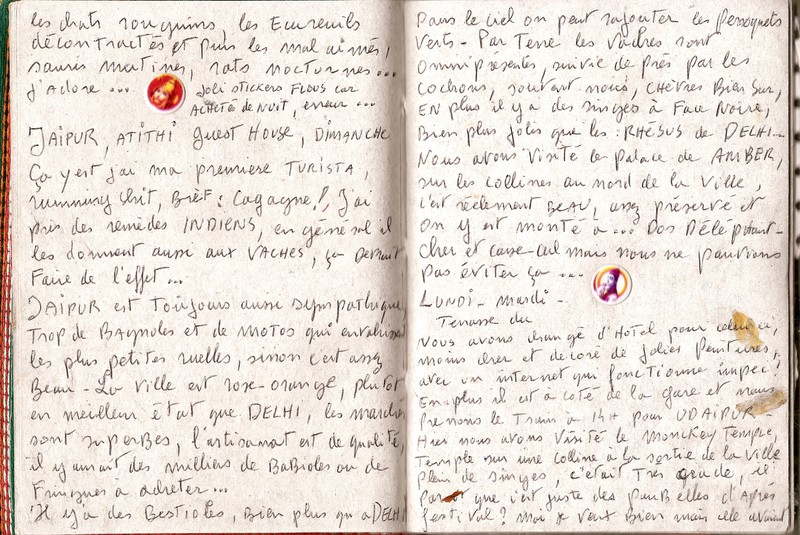 les chats rouquins, les Ecureuils
décontractés et puis les mal aimés,
souris matines, rats nocturnes...
J'adore... Joli stickers Flous car
Acheté de Nuit, erreur...
JAIPUR, ATITHI Guest House, DIMANCHE
Ça y est j'ai ma première TURISTA,
running shit, Brèf: Cagagne!, J'ai
pris des remèdes INDIENS, en général il
les donnent aussi aux VACHES, ça devrait
Faire de l'effet...
JAIPUR est toujours aussi sympathique,
Trop de BAgnoles et de motos qui envahissent
les plus petites ruelles, sinon c'est assez
Beau - La Ville est rose-orangé, plutôt
en meilleur état que DELHI, les marchés
sont superbes, l'artisanat est de qualité,
il y aurait des milliers de BaBioles ou de
Fringues à acheter...
Il y a des Bestioles, Bien plus qu'à DELHI
Dans le ciel on peut rajouter les Perroquets
Verts - Par Terre les Vaches sont
Omniprésentes, suivie de près par les
Cochons, souvent noirs, Chèvres Bien Sur,
EN plus il y a des singes à Face Noire,
Bien plus jolis que les RHÉSUS de DELHI...
Nous avons Visité le Palace de AMBER,
sur les collines au nord de la Ville,
c'est réellement BEAU, assez préservé et
On y est monté à ... Dos D'éléphant -
Cher et casse-cul mais nous ne pouvions
pas éviter ça...
LUNDI - Mardi -
Terrasse du
Nous avons changé d'Hotel pour
moins cher et décoré de jolies Peintures,
avec un internet qui fonctionne impec!
En plus il est à coté de la gare et nous
Prenons le Train à 14H pour UDAIPUR
Hier nous avons Visité le Monckey Temple,
Temple sur une colline à la sortie de la Ville
Plein de singes, c'était Très crade, il
Parait que c'est juste des pouBelles d'Après
Festival? Moi je veux Bien mais elle avaient